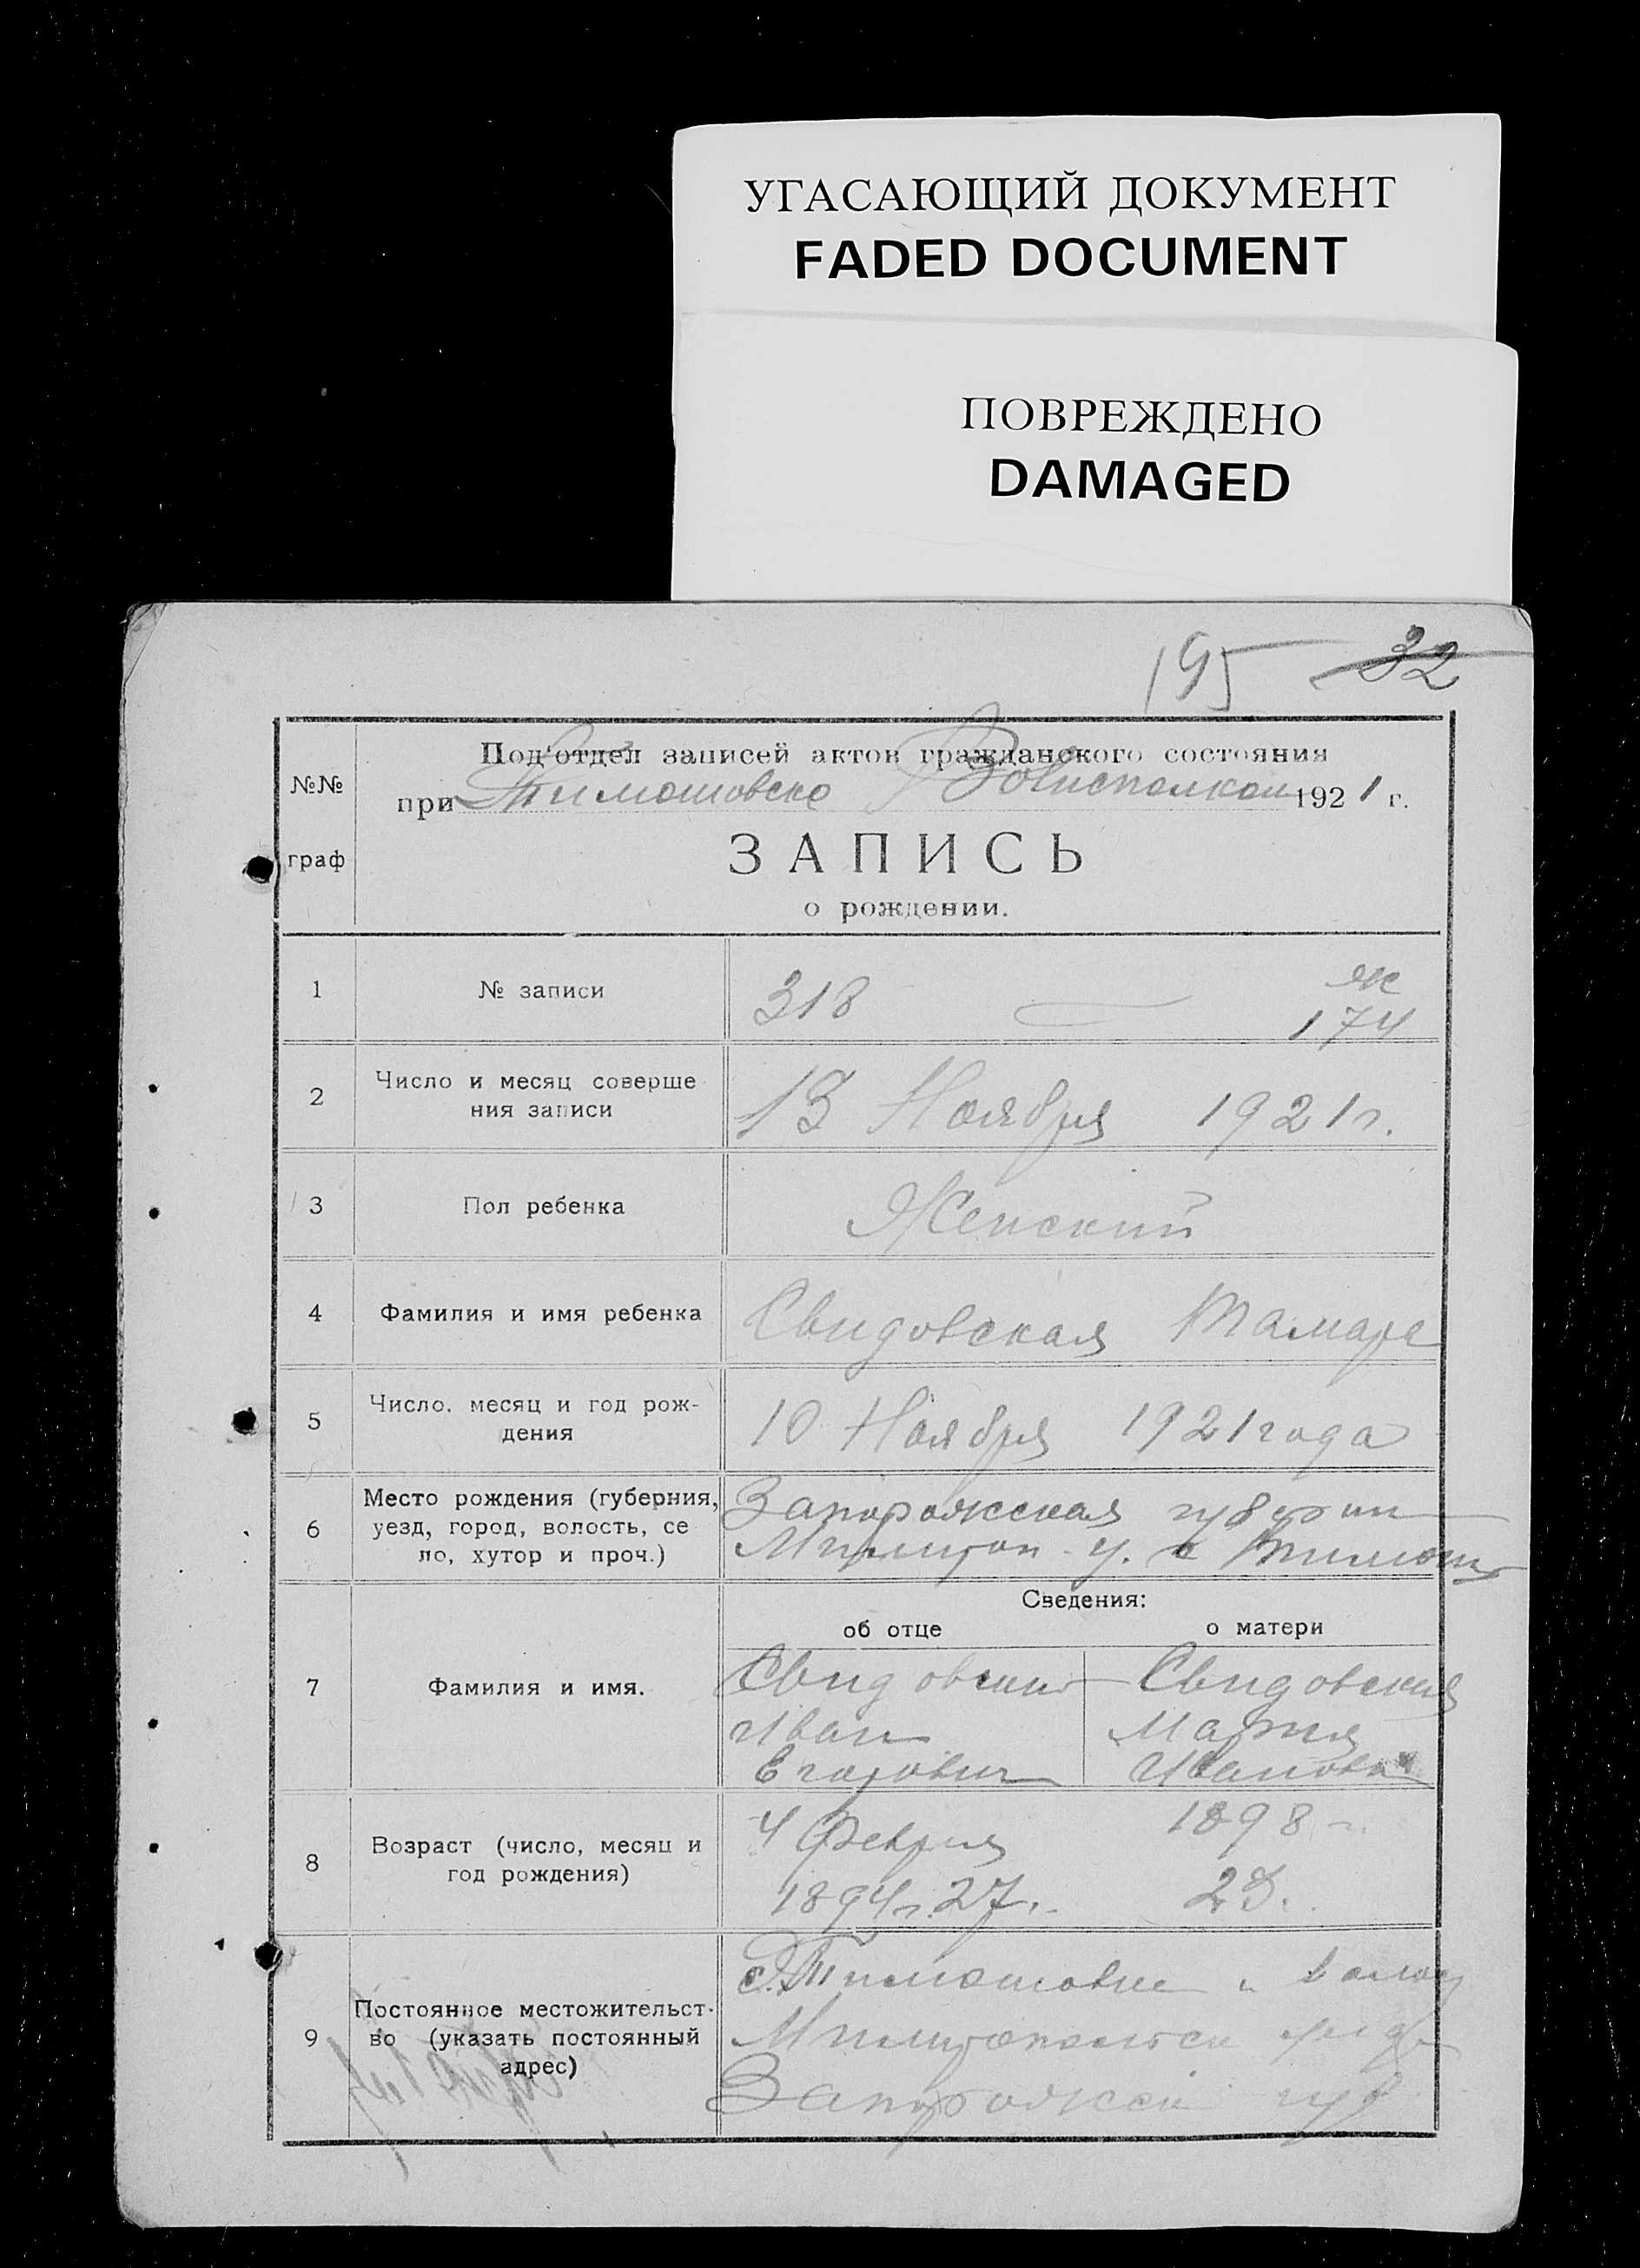 УГАСАЮЩИЙ ДОКУМЕНТ
FADED DOCUMENT
ПОВРЕЖДЕНО
DAMAGED
195 32
Под'отдел записей актов гражданского состояния
при Тимошовско Волисполком 1921 г.
№№
граф
ЗАПИСЬ
о рождении.
1 № записи 318 ж
174
2 Число и месяц соверше
ния записи
13 Ноября 1921 г.
3 Пол ребенка Женский
4 Фамилия и имя ребенка Свидовская Тамара
5 Число, месяц и год рож-
дения
10 Ноября 1921 года
6 Место рождения (губерния,
уезд, город, волость, се
ло, хутор и проч.)
Запорожская губернии
Милитоп. у. с Тимош
Сведения:
об отце о матери
7 Фамилия и имя.
Свидовский
Иван
Егорович
Свидовская
Мария
Иванова
8 Возраст (число, месяц и
год рождения)
4 Февраля
1894 г. 27.
1898 г.
23.
9 Постоянное местожительст-
во (указать постоянный
адрес)
с. Тимошовке и волос
Милитопольск уезд
Запорожской губ